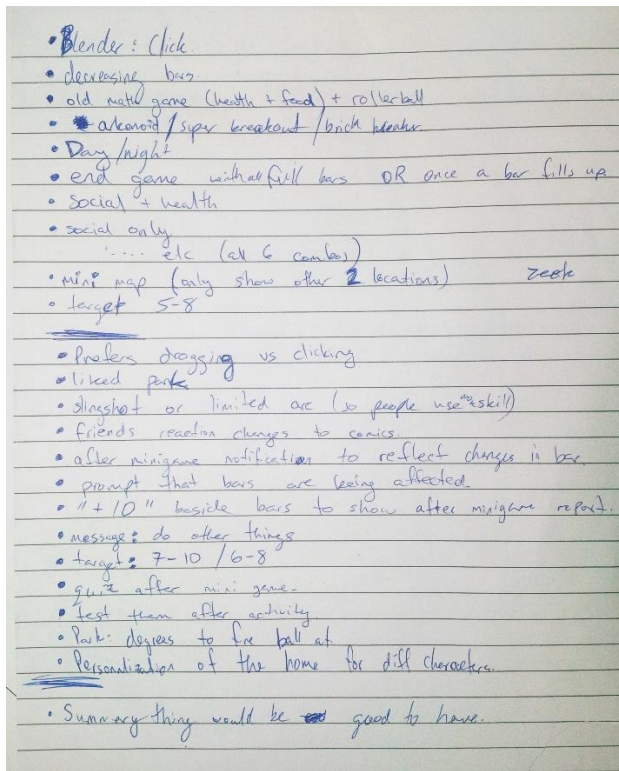 • Blender: Click.
• decreasing bars.
• old math game (health + food) + rollerball
• arkanoid / super breakout / brick breaker
• Day/night
• end game with all full bars OR once a bar fills up
• Social + health
• social only
'.... etc (all 6 combos)
• mini map (only show other 2 locations) zeek
• target 5-8
• Prefers dragging vs clicking
• liked park
• slingshot or limited arc (so people use no skill)
• friends reaction changes to comics.
• after minigame notification to reflect changes in bar.
• prompt that bars are being affected.
• "+10" beside bars to show after minigame report.
• message: do other things
• target: 7-10 / 6-8
• quiz after mini game.
• test them after activity
• Park: degrees to fire ball at.
• Personalization of the home for diff characters.
• Summary thing would be good to have.